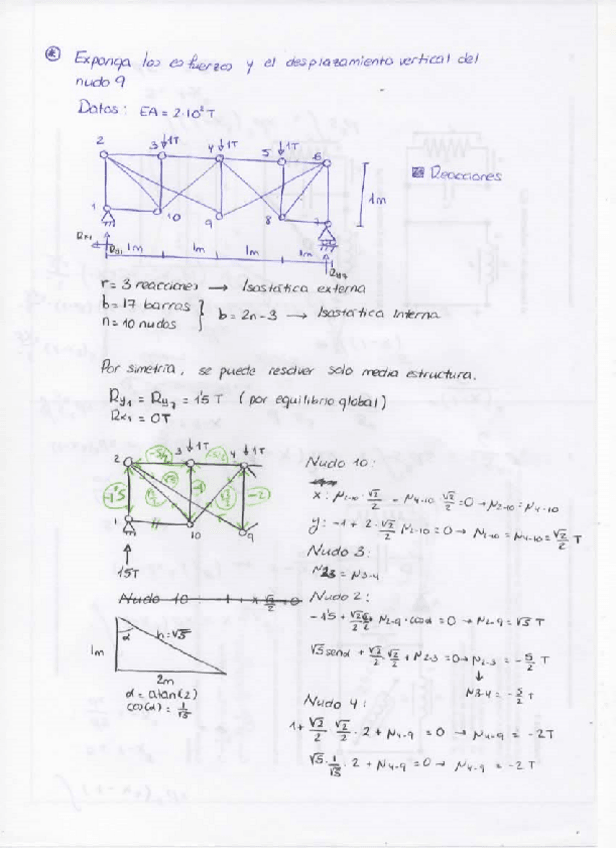 Exponga los esfuerzos y el desplazamiento vertical del
nudo 9
Datos: EA = 2·10² T
2 3 ↓1T 4 ↓1T 5 ↓1T 6
Reacciones
1m
1 10 9 8
1m 1m 1m 1m
r = 3 reacciones → Isostática externa
b = 17 barras } b = 2n - 3 → Isostática interna
n = 10 nudos
Por simetría, se puede resolver solo media estructura.
Ry₁ = Ry₇ = 1'5 T (por equilibrio global)
Rx₁ = 0T
2 3 ↓1T 4 ↓1T
-5/2 -5/2
-1'5 √5 √2/2 -1 √2/2 -2
1 10 9
1'5T
Nudo 10:
x: N₂₋₁₀ · √2/2 - N₄₋₁₀ √2/2 = 0 → N₂₋₁₀ = N₄₋₁₀
y: -1 + 2 · √2/2 N₂₋₁₀ = 0 → N₂₋₁₀ = N₄₋₁₀ = √2/2 T
Nudo 3:
N₂₃ = N₃₋₄
Nudo 10:
Nudo 2:
-1'5 + √2/2 √2/2 + N₂₋₉ · cos α = 0 → N₂₋₉ = √5 T
√5 sen α + √2/2 · √2/2 + N₂₋₃ = 0 → N₂₋₃ = -5/2 T
↓
N₃₋₄ = -5/2 T
1m α h = √5
2m
α = atan(2)
cos(α) = 1/√5
Nudo 4:
1 + √2/2 · √2/2 · 2 + N₄₋₉ = 0 → N₄₋₉ = -2T
√5 · 1/√5 · 2 + N₄₋₉ = 0 → N₄₋₉ = -2 T